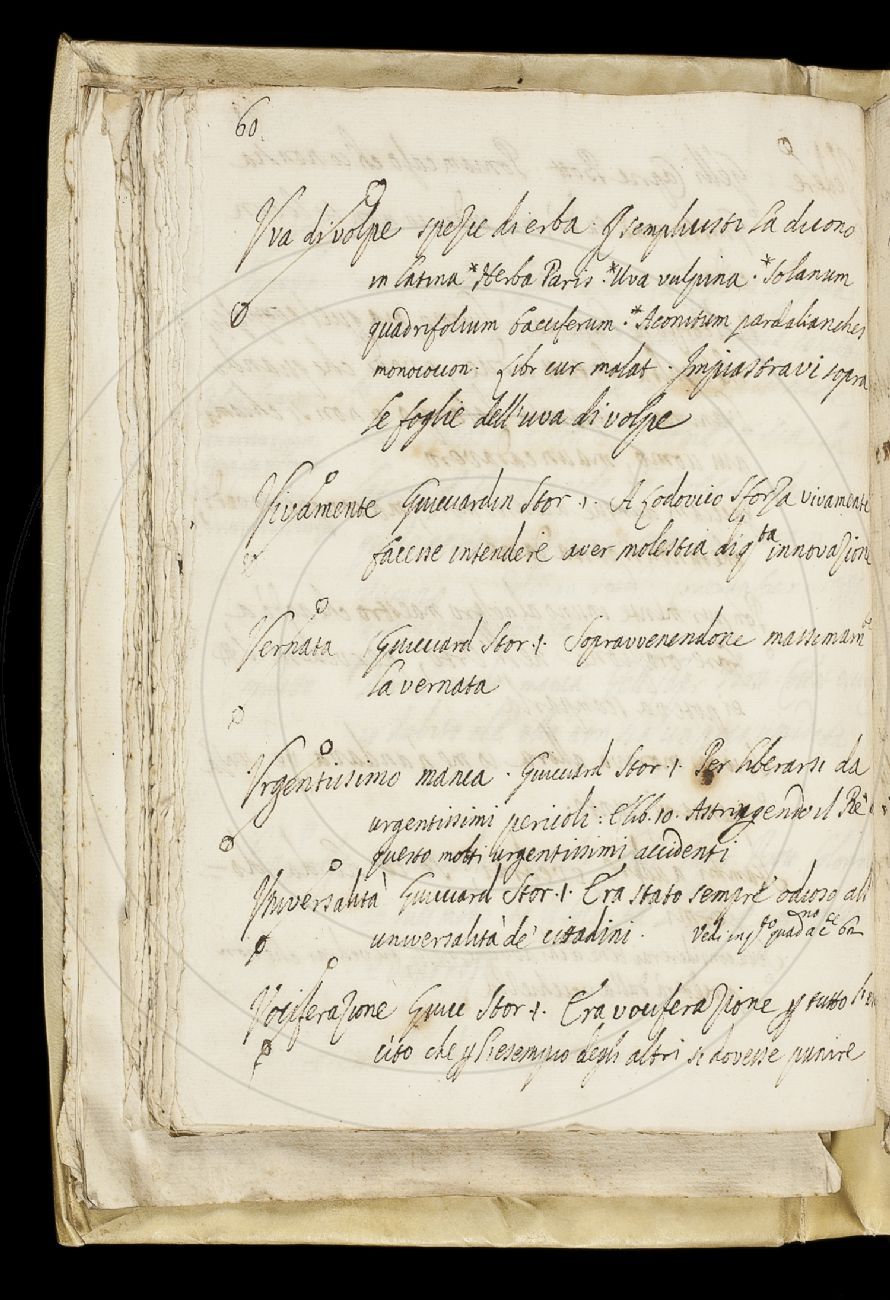 60
Vva di volpe spezie di erba. I semplicisti la dicono
in latina *Herba Paris. *Uva vulpina. *Solanum
quadrifolium bacciferum. *Aconitum pardalianches
monococcon. Libr cur malat. Impiastravi sopra
le foglie dell'uva di volpe
Vivamente Guicciardin Stor. 1. A Lodovico Sforza vivamente
facesse intendere aver molestia di qta innovazione
Vernata Guicciard Stor. 1. Sopravvenendone massimamte
la vernata
Vrgentissimo manca. Guicciard Stor. 1. Per liberarsi da
urgentissimi pericoli. E lib. 10. Astringendo il Re
questo molti urgentissimi accidenti
Vniversalità Guicciard Stor. 1. Era stato sempre odioso all
universalità de' cittadini. Vedi in qto quadno a ce 62
Vociferazione Guicc Stor. 1. Era vociferazione p tutto
cito che p l'esempio degli altri si dovesse punire